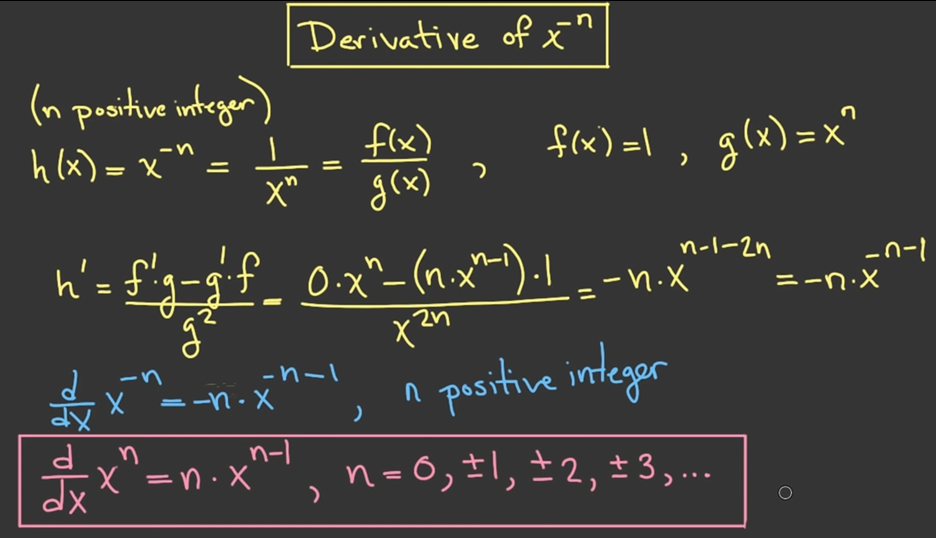 Derivative of x⁻ⁿ
(n positive integer)
h(x) = x⁻ⁿ = 1/xⁿ = f(x)/g(x) , f(x) = 1 , g(x) = xⁿ
h' = (f'·g − g'·f)/g² = (0·xⁿ − (n·xⁿ⁻¹)·1)/x²ⁿ = −n·xⁿ⁻¹⁻²ⁿ = −n·x⁻ⁿ⁻¹
d/dx x⁻ⁿ = −n·x⁻ⁿ⁻¹ , n positive integer
d/dx xⁿ = n·xⁿ⁻¹ , n = 0, ±1, ±2, ±3, ...